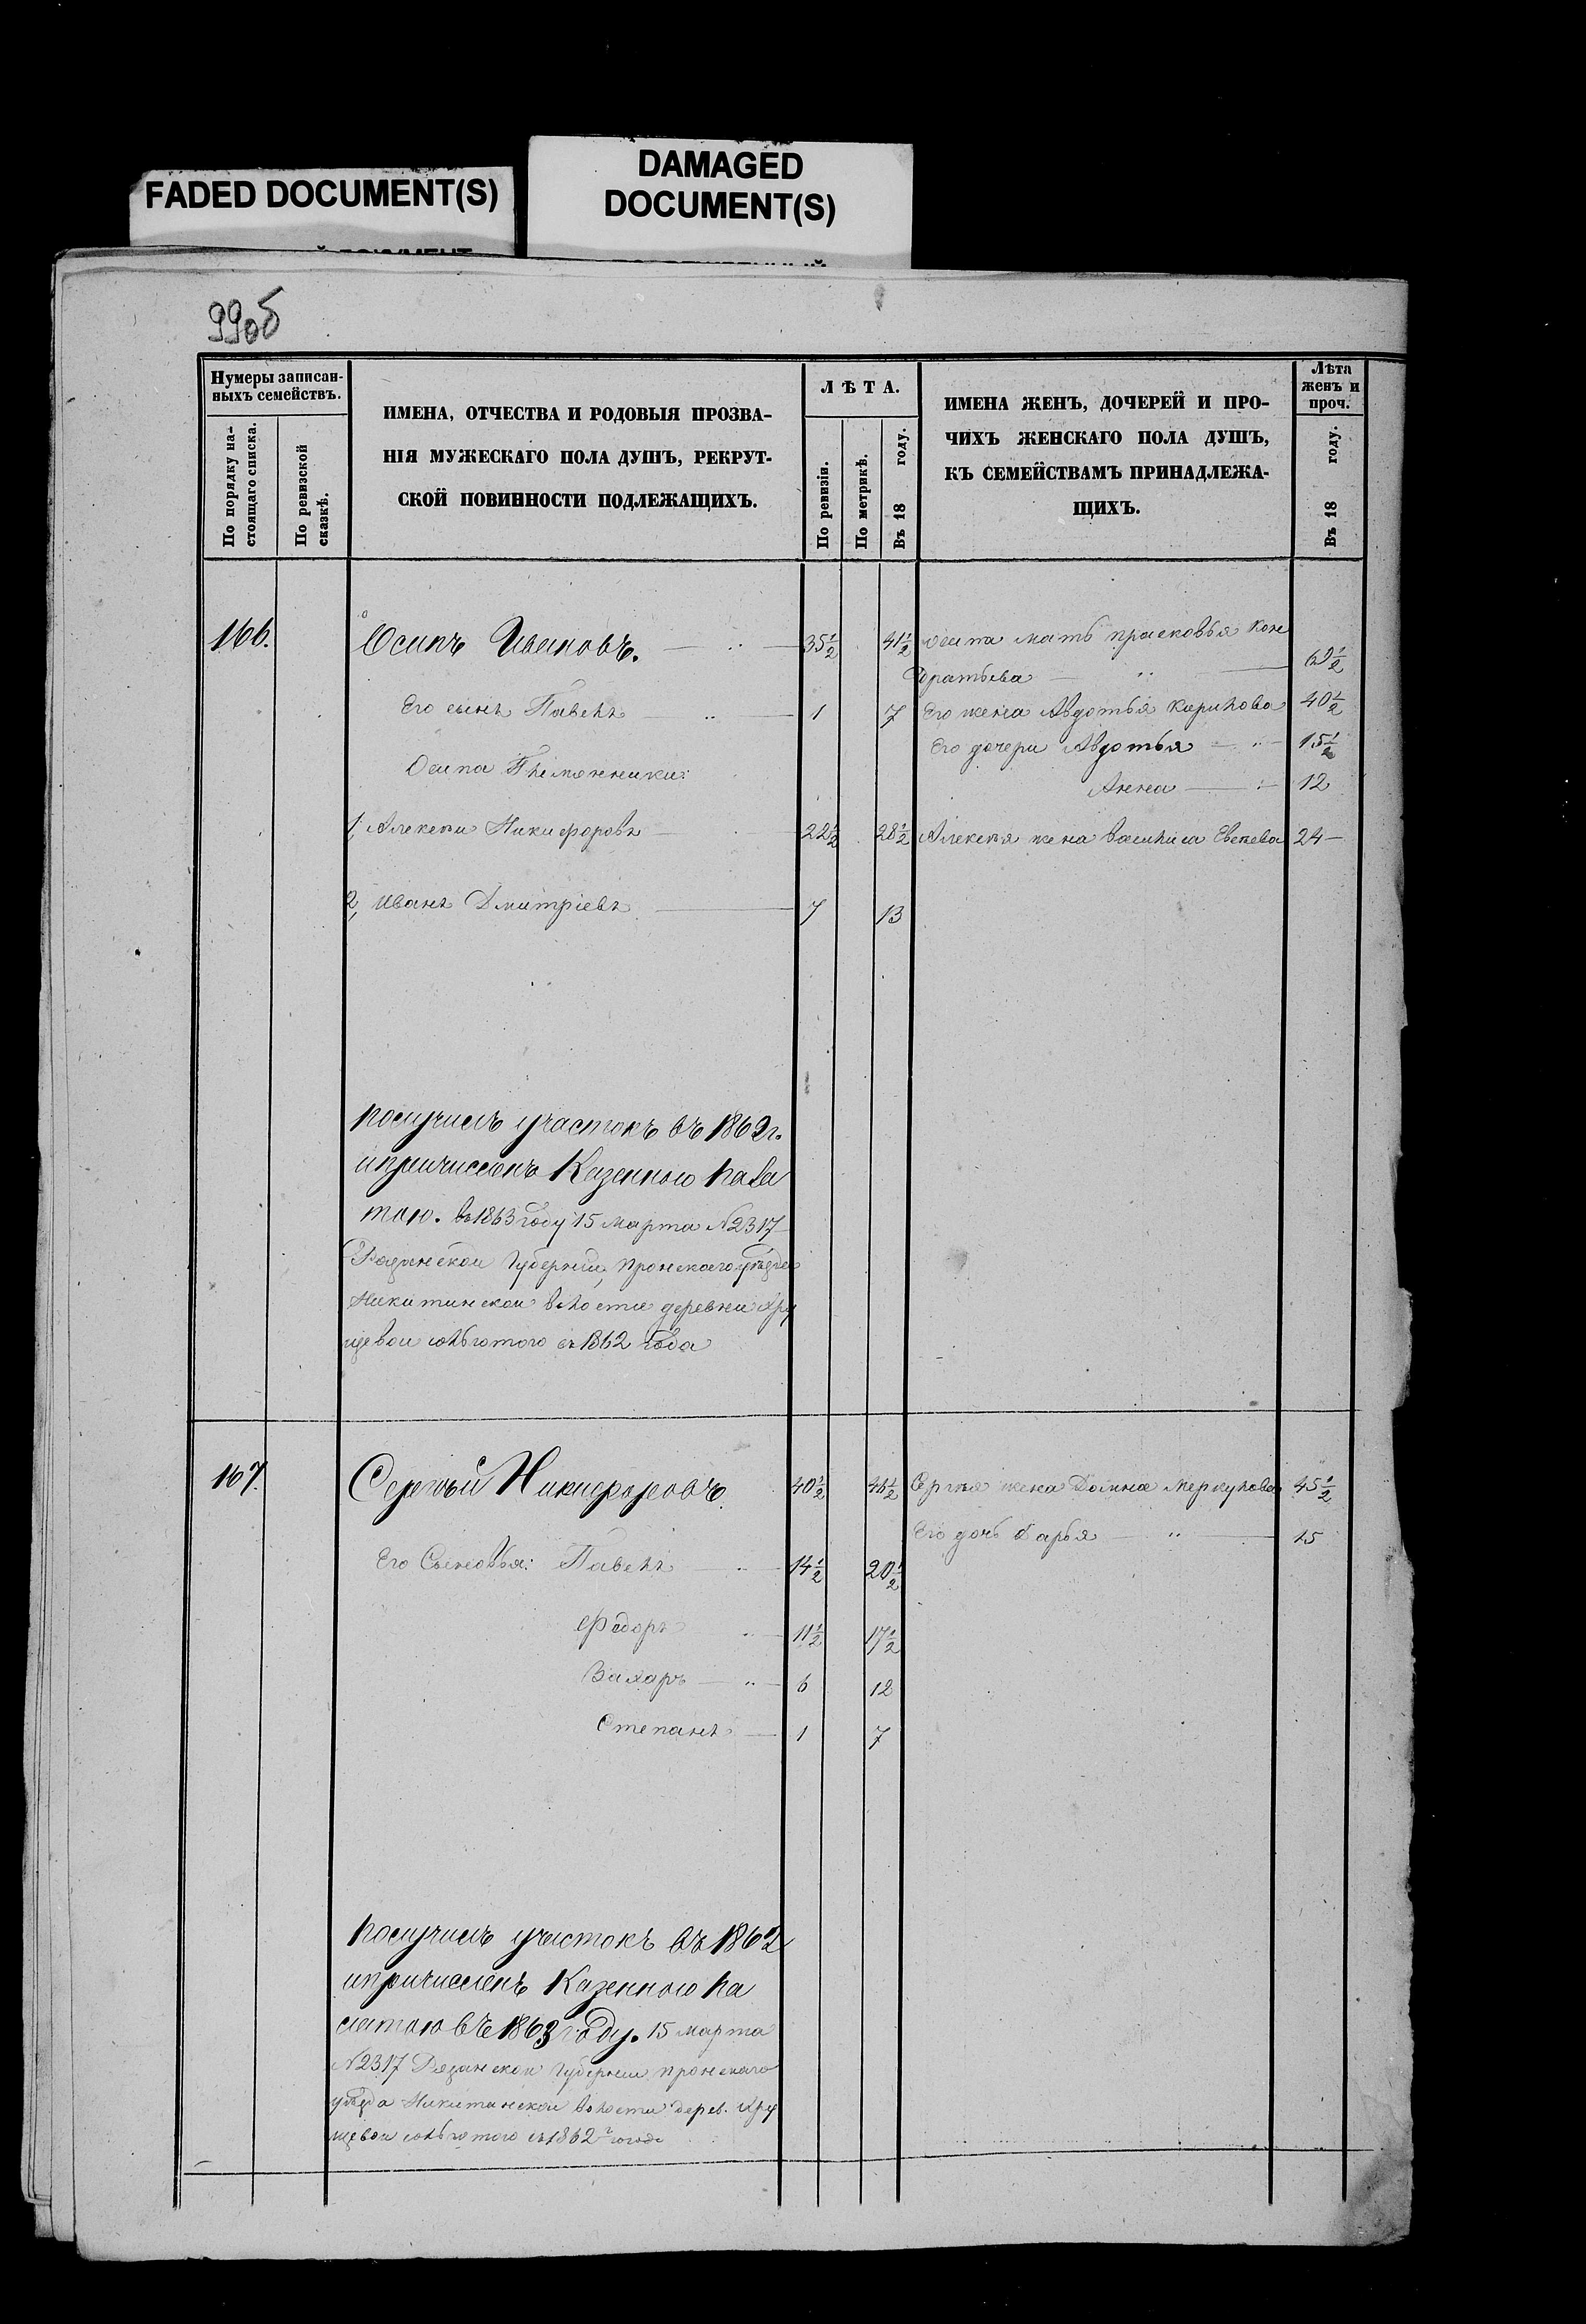 FADED DOCUMENT(S)
DAMAGED
DOCUMENT(S)
99об
Нумеры записан-
ныхъ семействъ.
По порядку на-
стоящаго списка.
По ревизской
сказкѣ.
ИМЕНА, ОТЧЕСТВА И РОДОВЫЯ ПРОЗВА-
НІЯ МУЖЕСКАГО ПОЛА ДУШЪ, РЕКРУТ-
СКОЙ ПОВИННОСТИ ПОДЛЕЖАЩИХЪ.
ЛѢТА.
По ревизіи.
По метрикѣ.
Въ 18 году.
ИМЕНА ЖЕНЪ, ДОЧЕРЕЙ И ПРО-
ЧИХЪ ЖЕНСКАГО ПОЛА ДУШЪ,
КЪ СЕМЕЙСТВАМЪ ПРИНАДЛЕЖА-
ЩИХЪ.
Лѣта
женъ и
проч.
Въ 18 году.
166. Осипъ Ивановъ. 35½ 41½ Осипа мать прасковья Кон
дратьева
Его сынъ Павелъ 1 7 Его жена Авдотья Карпова 40½
Его дочери Авдотья 15½
Осипа Племянники:
Анна 12
1, Алексѣи Никифоровъ 22½ 28½ Алексѣя жена василиса 24
2, Иванъ Дмитріевъ 7 13
получилъ участокъ въ 1862г.
и причисленъ Казенною пала
тою. въ 1863 году 15 марта N2317
Рязанской Губерніи, Пронскаго уѣзда
Никитинской волости деревни Хру
щевой со льготою съ 1862 года
167. Сергѣй Никифоровъ. 40½ 46½ Сергѣя жена Домна Меркулова 45½
Его дочь Дарья 15
Его Сыновья: Павелъ 14½ 20½
Федоръ 11½ 17½
Захаръ 6 12
Степанъ 1 7
получилъ участокъ въ 1862
и причисленъ Казенною па
латою въ 1863 году. 15 марта
N2317 Рязанской Губерніи пронскаго
уѣзда Никитинской волости дерев. Хру
щевой со льготою съ 1862